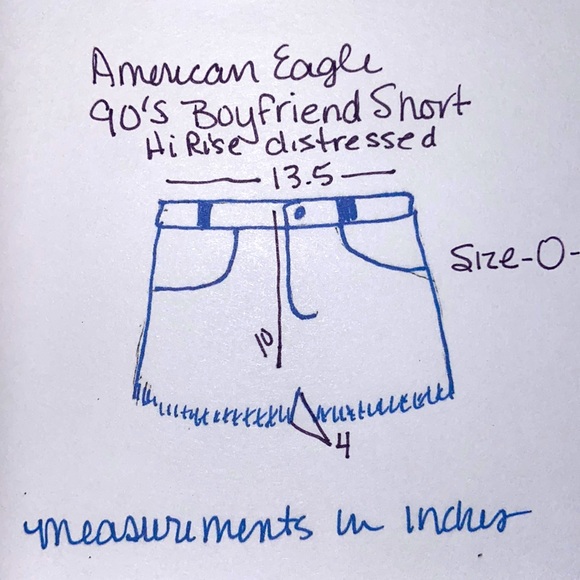 American Eagle
90's Boyfriend Short
Hi Rise distressed
13.5
Size-0-
10
4
measurements in inches